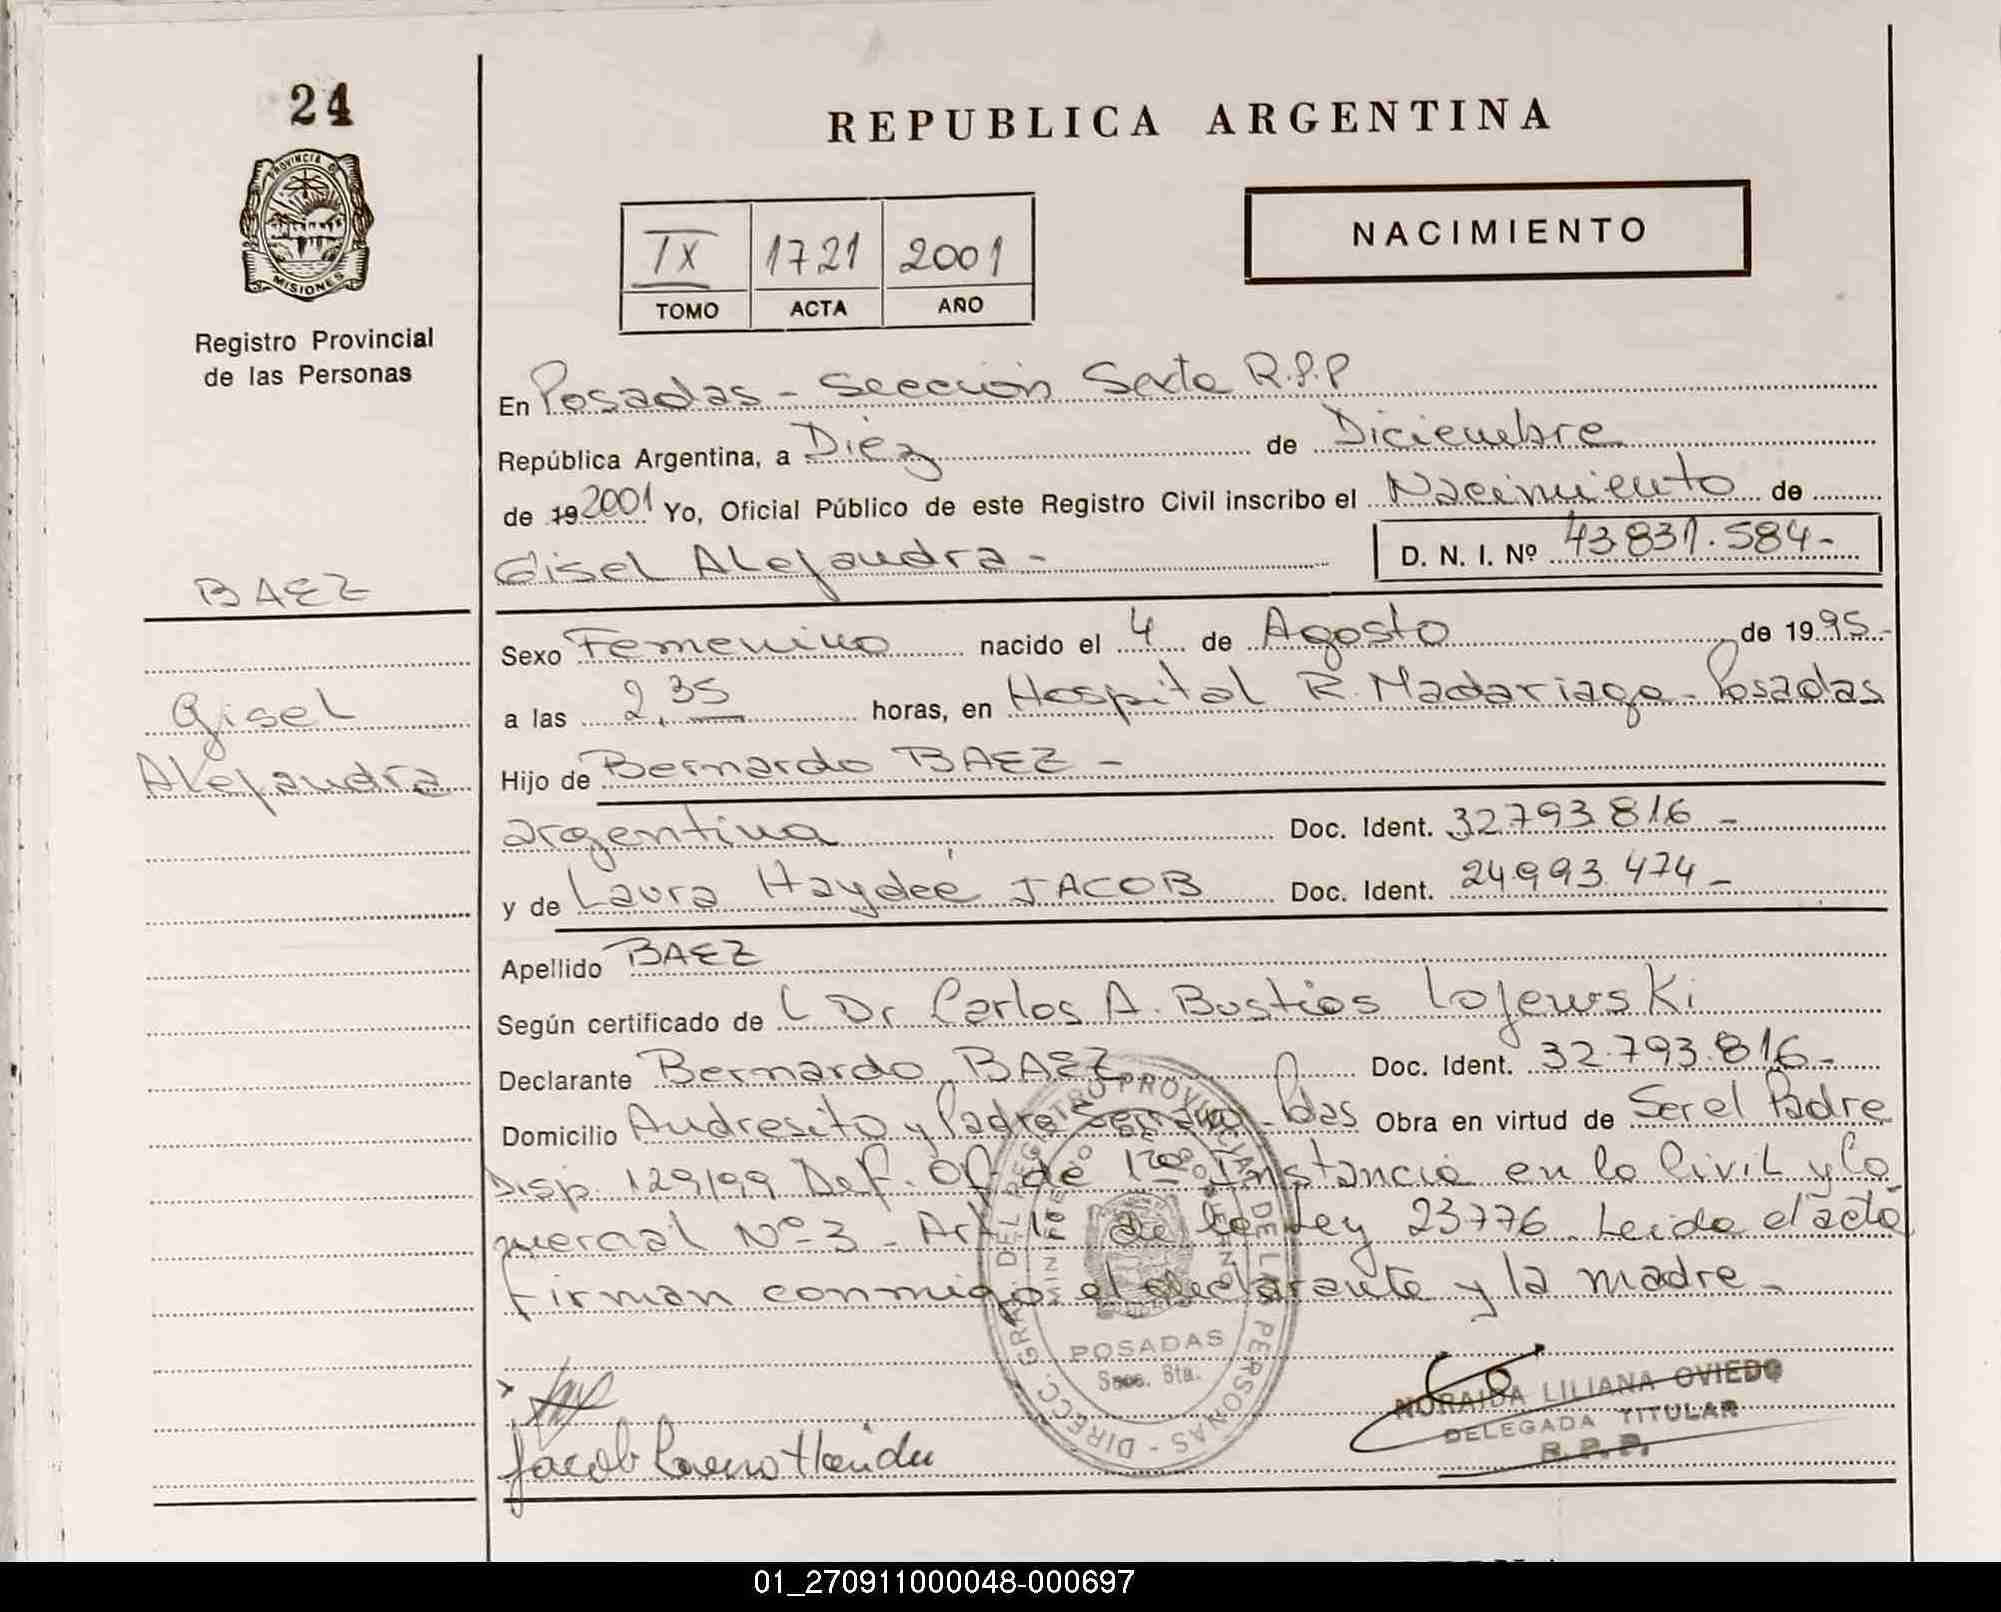 24
REPUBLICA ARGENTINA
PROVINCIA DE
MISIONES
Registro Provincial
de las Personas
NACIMIENTO
IX 1721 2001
TOMO ACTA AÑO
En Posadas - Sección Sexta R.P.P
República Argentina, a Diéz de Diciembre
de 19 2001 Yo, Oficial Público de este Registro Civil inscribo el Nacimiento de
Gisel Alejandra - D. N. I. Nº 43.831.584-
BAEZ
Gisel
Alejandra
Sexo Femenino nacido el 4 de Agosto de 1995-
a las 2,35 horas, en Hospital R. Madariaga - Posadas
Hijo de Bernardo BAEZ -
argentina Doc. Ident. 32.793.816 -
y de Laura Haydeé JACOB Doc. Ident. 24.993.474 -
Apellido BAEZ
Según certificado de Dr Carlos A. Bustios Lojewski
Declarante Bernardo BAEZ Doc. Ident. 32.793.816-
Domicilio Andresito y Padre Serrano - Pdas Obra en virtud de Ser el Padre
Disp. 129/99 Def. Of. de 1ra Instancia en lo Civil y Co
mercial Nº 3 - Art de la Ley 23776. Leida el acta
firman conmigo el declarante y la madre -
DIRECC. GRAL. DEL REGISTRO PROVINCIAL DE LAS PERSONAS
POSADAS
Secc. 6ta.
NORAIDA LILIANA OVIEDO
DELEGADA TITULAR
R. P. P.
Jacob
01_270911000048-000697